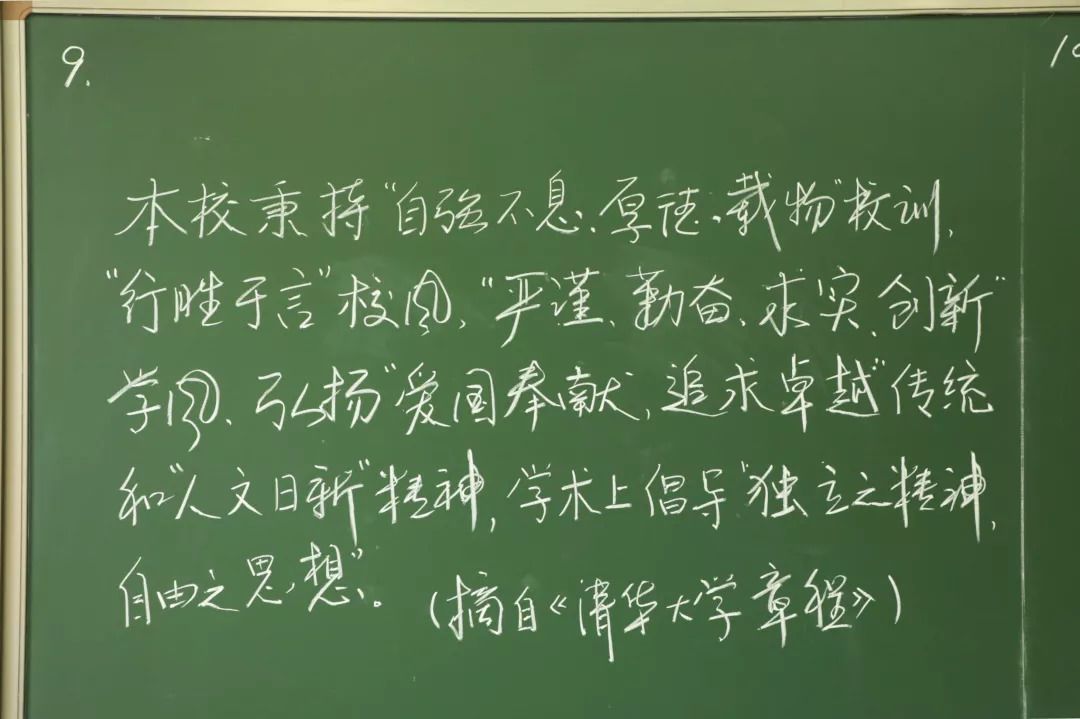 9.
10
本校秉持“自强不息、厚德载物”校训、
“行胜于言”校风、“严谨、勤奋、求实、创新”
学风、弘扬“爱国奉献、追求卓越”传统
和“人文日新”精神，学术上倡导“独立之精神，
自由之思想”。
(摘自《清华大学章程》)